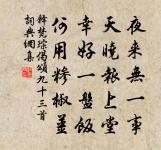 夜來無一事
天曉報上堂
幸好一盤飯
何用糝椒薑
釋梵琮偈頌九十三首
詞典網集